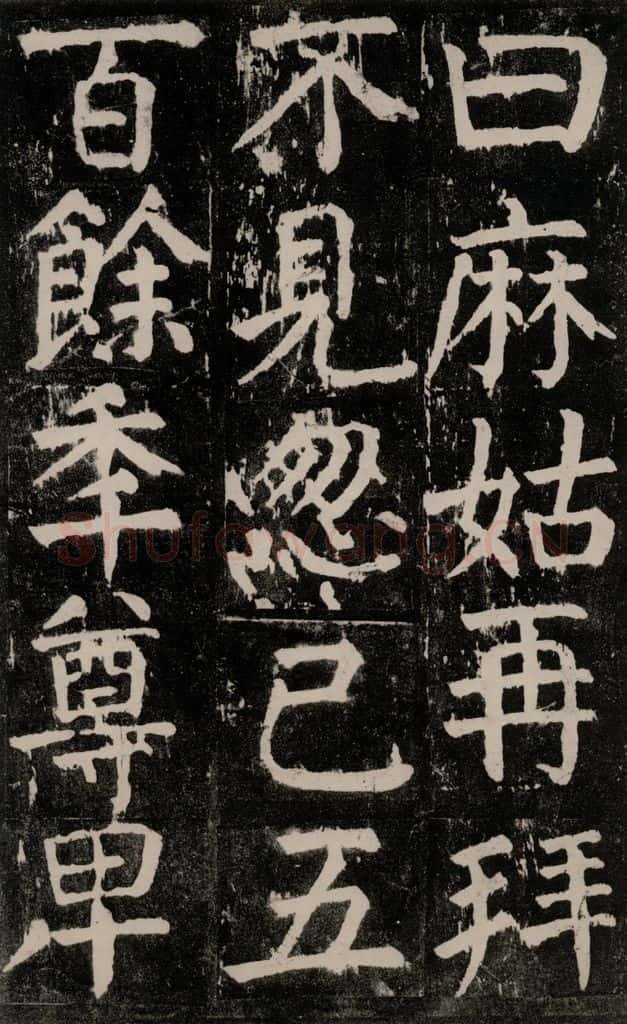 曰麻姑再拜
不見忽已五
百餘年尊卑
Shufawang.CN